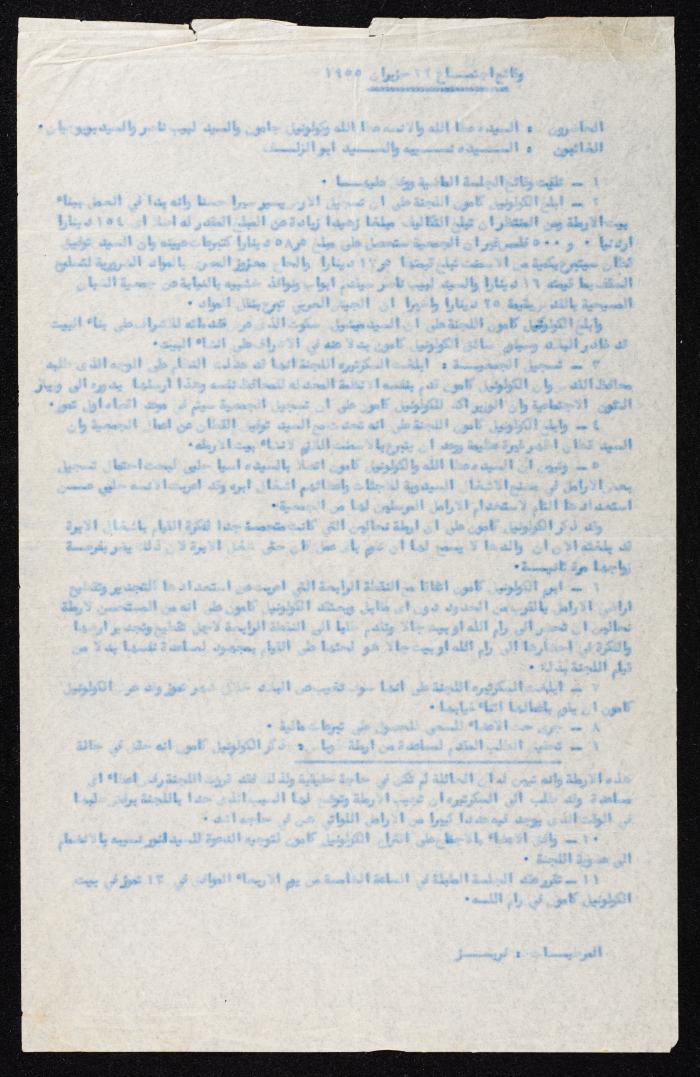 وقائع اجتماع ٢٢ حزيران ١٩٥٥
الحاضرون : السيده عطا الله والانسه عطا الله وكولونيل كامون والسيد لبيب ناصر والسيد
الغائبون : السيده نسيبه والسيد ابو الزلف
١ – تليت وقائع الجلسة الماضية ووفق عليها .
٢ – ابلغ الكولونيل كامون اللجنة على ان تسجيل الارض يسير سيرا حسنا وانه بدأ في العمل ببناء
بيت الارملة ومن المنتظر ان تبلغ التكاليف مبلغا زهيدا زيادة عن المبلغ المقدر له اصلا اى ١٥٤ دينارا
اردنيا . و ٥٠٠ فلس غير ان الجمعية ستحصل على مبلغ ٥٨ دينارا كتبرعات عينيه وان السيد توفيق
قطان سيتبرع بكمية من الاسمنت تبلغ قيمتها ١٢ دينارا والحاج معزوز المصرى بالمواد الضرورية لتسليح
السقف بما قيمته ١٦ دينارا والسيد لبيب ناصر سيقدم ابواب ونوافذ خشبيه بالنيابة عن جمعية الشبان
المسيحية بالقدس بقيمة ٢٥ دينارا واخيرا ان الجيش العربي تبرع بنقل المواد .
وابلغ الكولونيل كامون اللجنة على ان السيد سكوت الذى عرض خدماته للاشراف على بناء البيت
قد غادر البلاد وسيتولى سائق الكولونيل كامون بدلا عنه في الاشراف على انشاء البيت .
٣ – تسجيل الجمعية : ابلغت السكرتيره اللجنة انها قد عدلت النظام على الوجه الذى طلبه
محافظ القدس وان الكولونيل كامون قدم بنفسه الانظمة المعدله للمحافظ نفسه وهذا ارسلها بدوره الى وزير
الشئون الاجتماعية وان الوزير اكد للكولونيل كامون على ان تسجيل الجمعية سيتم في موعد اقصاه اول تموز .
٤ – وابلغ الكولونيل كامون اللجنة على انه تحدث مع السيد توفيق القطان عن اعمال الجمعية وان
السيد قطان اظهر غيرة عظيمة ووعد ان يتبرع بالاسمنت اللازم لانشاء بيت الارمله .
٥ – السيده عطا الله والكولونيل كامون اتصلا بالسيده اسيا حلبي لبحث احتمال تشغيل
بعض الارامل في مصنع الاشغال اليدوية للاجئات واعطائهم اشغال ابره وقد اعربت الانسه حلبي عن
استعدادها التام لاستخدام الارامل المرسلين لها من الجمعية .
وقد ذكر الكولونيل كامون على ان ارملة نحالين التي كانت متحمسة جدا لفكرة القيام باشغال الابرة
قد بلغته الان ان والدها لا يسمح لها ان تقوم باى عمل كان حتى شغل الابرة لان ذلك يضر بفرصة
زواجها مرة ثانية .
٦ – ابرم الكولونيل كامون اتفاقا مع النقطة الرابعة التي اعربت عن استعدادها لتجدير وتفليح
اراضي الارامل بالقرب من الحدود دون اى مقابل وبحثت الكولونيل كامون على انه من المستحسن لارملة
نحالين ان تحضر الى رام الله او بيت جالا وتقدم طلبا الى النقطة الرابعة لاجل تفليح وتجدير ارضها
والفكرة في احضارها الى رام الله او بيت جالا هو لحثها على القيام بمجهود لمساعدة نفسها بدلا من
قيام اللجنة بذلك .
٧ – ابلغت السكرتيره اللجنة على انها سوف تتغيب عن البلاد خلال شهر تموز وقد عرض الكولونيل
كامون ان يقوم باعمالها اثناء غيابها .
٨ – جرى حث الاعضاء للسعي للحصول على تبرعات مالية .
٩ – تحقيق الطلب المقدم لمساعدة من ارملة : ذكر الكولونيل كامون انه حقق في حالة
هذه الارملة وانه تبين له ان العائلة لم تكن في حاجة حقيقية ولذلك فقد قررت اللجنة رفض اعطاء اى
مساعدة وقد طلب الى السكرتيره ان تجيب الارملة وتوضح لها السبب الذى حدا باللجنة برفض طلبها
في الوقت الذى يوجد فيه عددا كبيرا من الارامل اللواتي هن في حاجه اشد .
١٠ – وافق الاعضاء بالاجماع على اقتراح الكولونيل كامون لتوجيه الدعوة للسيد انور نسيبه بالانضمام
الى عضوية اللجنة .
١١ – تقرر عقد الجلسة المقبلة في الساعة الخامسة من يوم الاربعاء الموافق في ١٣ تموز في بيت
الكولونيل كامون في رام الله .
: فريز